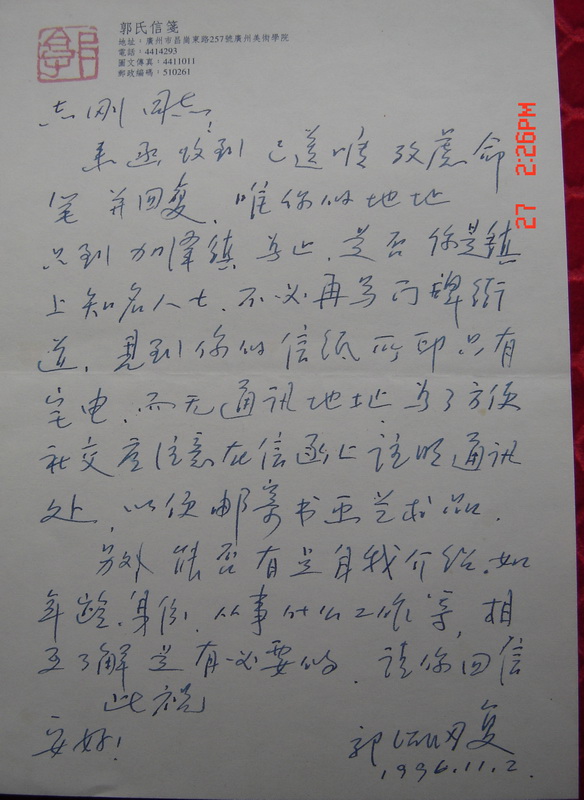 郭氏信箋
地址：廣州市昌崗東路257號廣州美術學院
電話：4414293
圖文傳真：4411011
郵政編碼：510261
志刚同志！
来函收到已遵嘱
笔并回复，唯你的地址
只到加泽镇为止，是否你是镇
上知名人士，不必再写门牌街
道，見到你的信纸所印只有
宅电，而无通訊地址，为了方便
社交应注意在信函上註明通訊
处，以便邮寄书画艺术品。
另外能否有是自我介绍，如
年龄、身份，从事什么工作等，相
互了解是有必要的，請你回信
此祝
安好！
郭 复
1996.11.2.
27 2:26PM